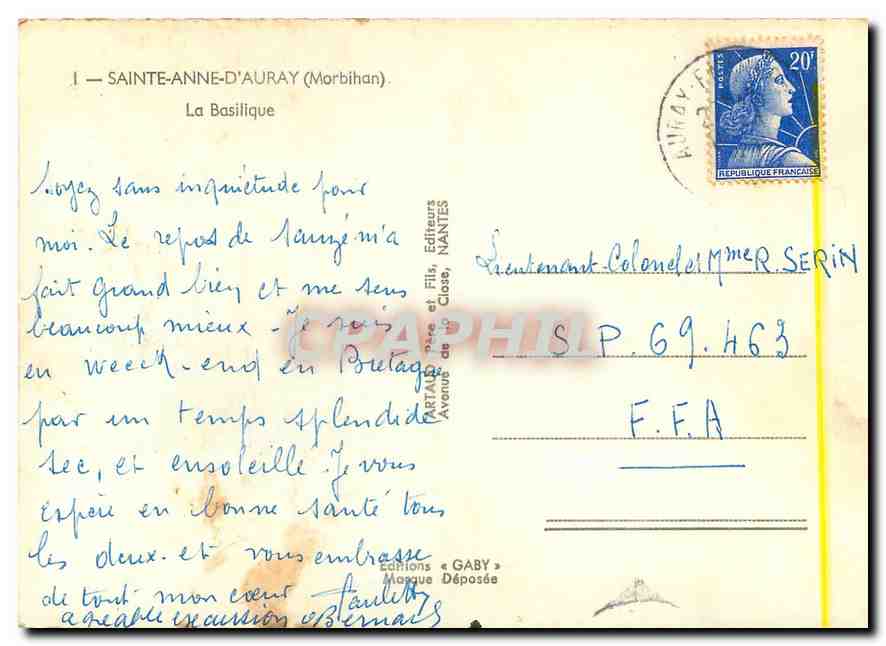 1 — SAINTE-ANNE-D'AURAY (Morbihan)
La Basilique
Soyez sans inquiétude pour
moi. Le repos de Sanzé m'a
fait grand bien et me sens
beaucoup mieux. Je suis
en weeck-end en Bretagne
par un temps splendide
sec, et ensoleillé. Je vous
espère en bonne santé tous
les deux et vous embrasse
de tout mon cœur Paulette
agréable excursion Bernard
ARTAUD Père et Fils, Editeurs
Avenue de la Close, NANTES
Editions « GABY »
Marque Déposée
AURAY
POSTES
20F
REPUBLIQUE FRANÇAISE
Lieutenant-Colonel et Mme R. SERIN
S P. 69.463
F.F.A
CPAPHIL